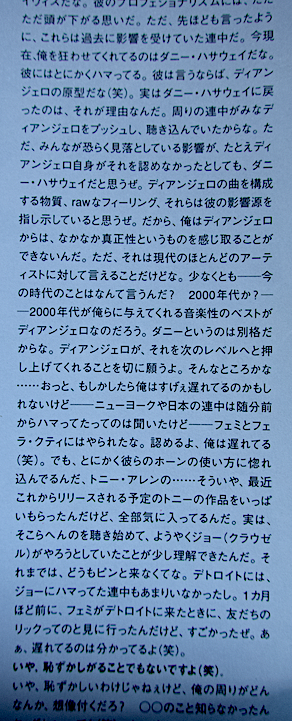 イヴィスだな。彼のプロフェショナリズムには、ただ
ただ頭が下がる思いだ。ただ、先ほども言ったよう
に、これらは過去に影響を受けていた連中だ。今現
在、俺を狂わせてくれてるのはダニー・ハサウェイだな。
彼にはとにかくハマってる。彼は言うならば、ディアン
ジェロの原型だな(笑)。実はダニー・ハサウェイに戻
ったのは、それが理由なんだ。周りの連中がみなデ
ィアンジェロをプッシュし、聴き込んでいたからな。た
だ、みんなが恐らく見落としている影響が、たとえディ
アンジェロ自身がそれを認めなかったとしても、ダニ
ー・ハサウェイだと思うぜ。ディアンジェロの曲を構成
する物質、rawなフィーリング、それらは彼の影響源を
指し示していると思うぜ。だから、俺はディアンジェロ
からは、なかなか真正性というものを感じ取ることが
できないんだ。ただ、それは現代のほとんどのアーテ
ィストに対して言えることだけどな。少なくとも——今
の時代のことはなんて言うんだ？　2000年代か？—
—2000年代が俺らに与えてくれる音楽性のベストが
ディアンジェロなのだろう。ダニーというのは別格だ
からな。ディアンジェロが、それを次のレベルへと押
し上げてくれることを切に願うよ。そんなところかな
……おっと、もしかしたら俺はすげぇ遅れてるのかもし
れないけど——ニューヨークや日本の連中は随分前
からハマってたってのは聞いたけど——フェミとフェ
ラ・クティにはやられたな。認めるよ、俺は遅れてる
(笑)。でも、とにかく彼らのホーンの使い方に惚れ
込んでるんだ、トニー・アレンの……そういや、最近
これからリリースされる予定のトニーの作品をいっぱ
いもらったんだけど、全部気に入ってるんだ。実は、
そこらへんのを聴き始めて、ようやくジョー(クラウゼ
ル)がやろうとしていたことが少し理解できたんだ。そ
れまでは、どうもピンと来なくてな。デトロイトには、
ジョーにハマってた連中もあまりいなかったし。1カ月
ほど前に、フェミがデトロイトに来たときに、友だちの
リックってのと見に行ったんだけど、すごかったぜ。あ
ぁ、遅れてるのは分かってるよ(笑)。
いや、恥ずかしがることでもないですよ(笑)。
いや、恥ずかしいわけじゃねぇけど、俺の周りがどん
なんか、想像付くだろ？　〇〇のこと知らなかったん